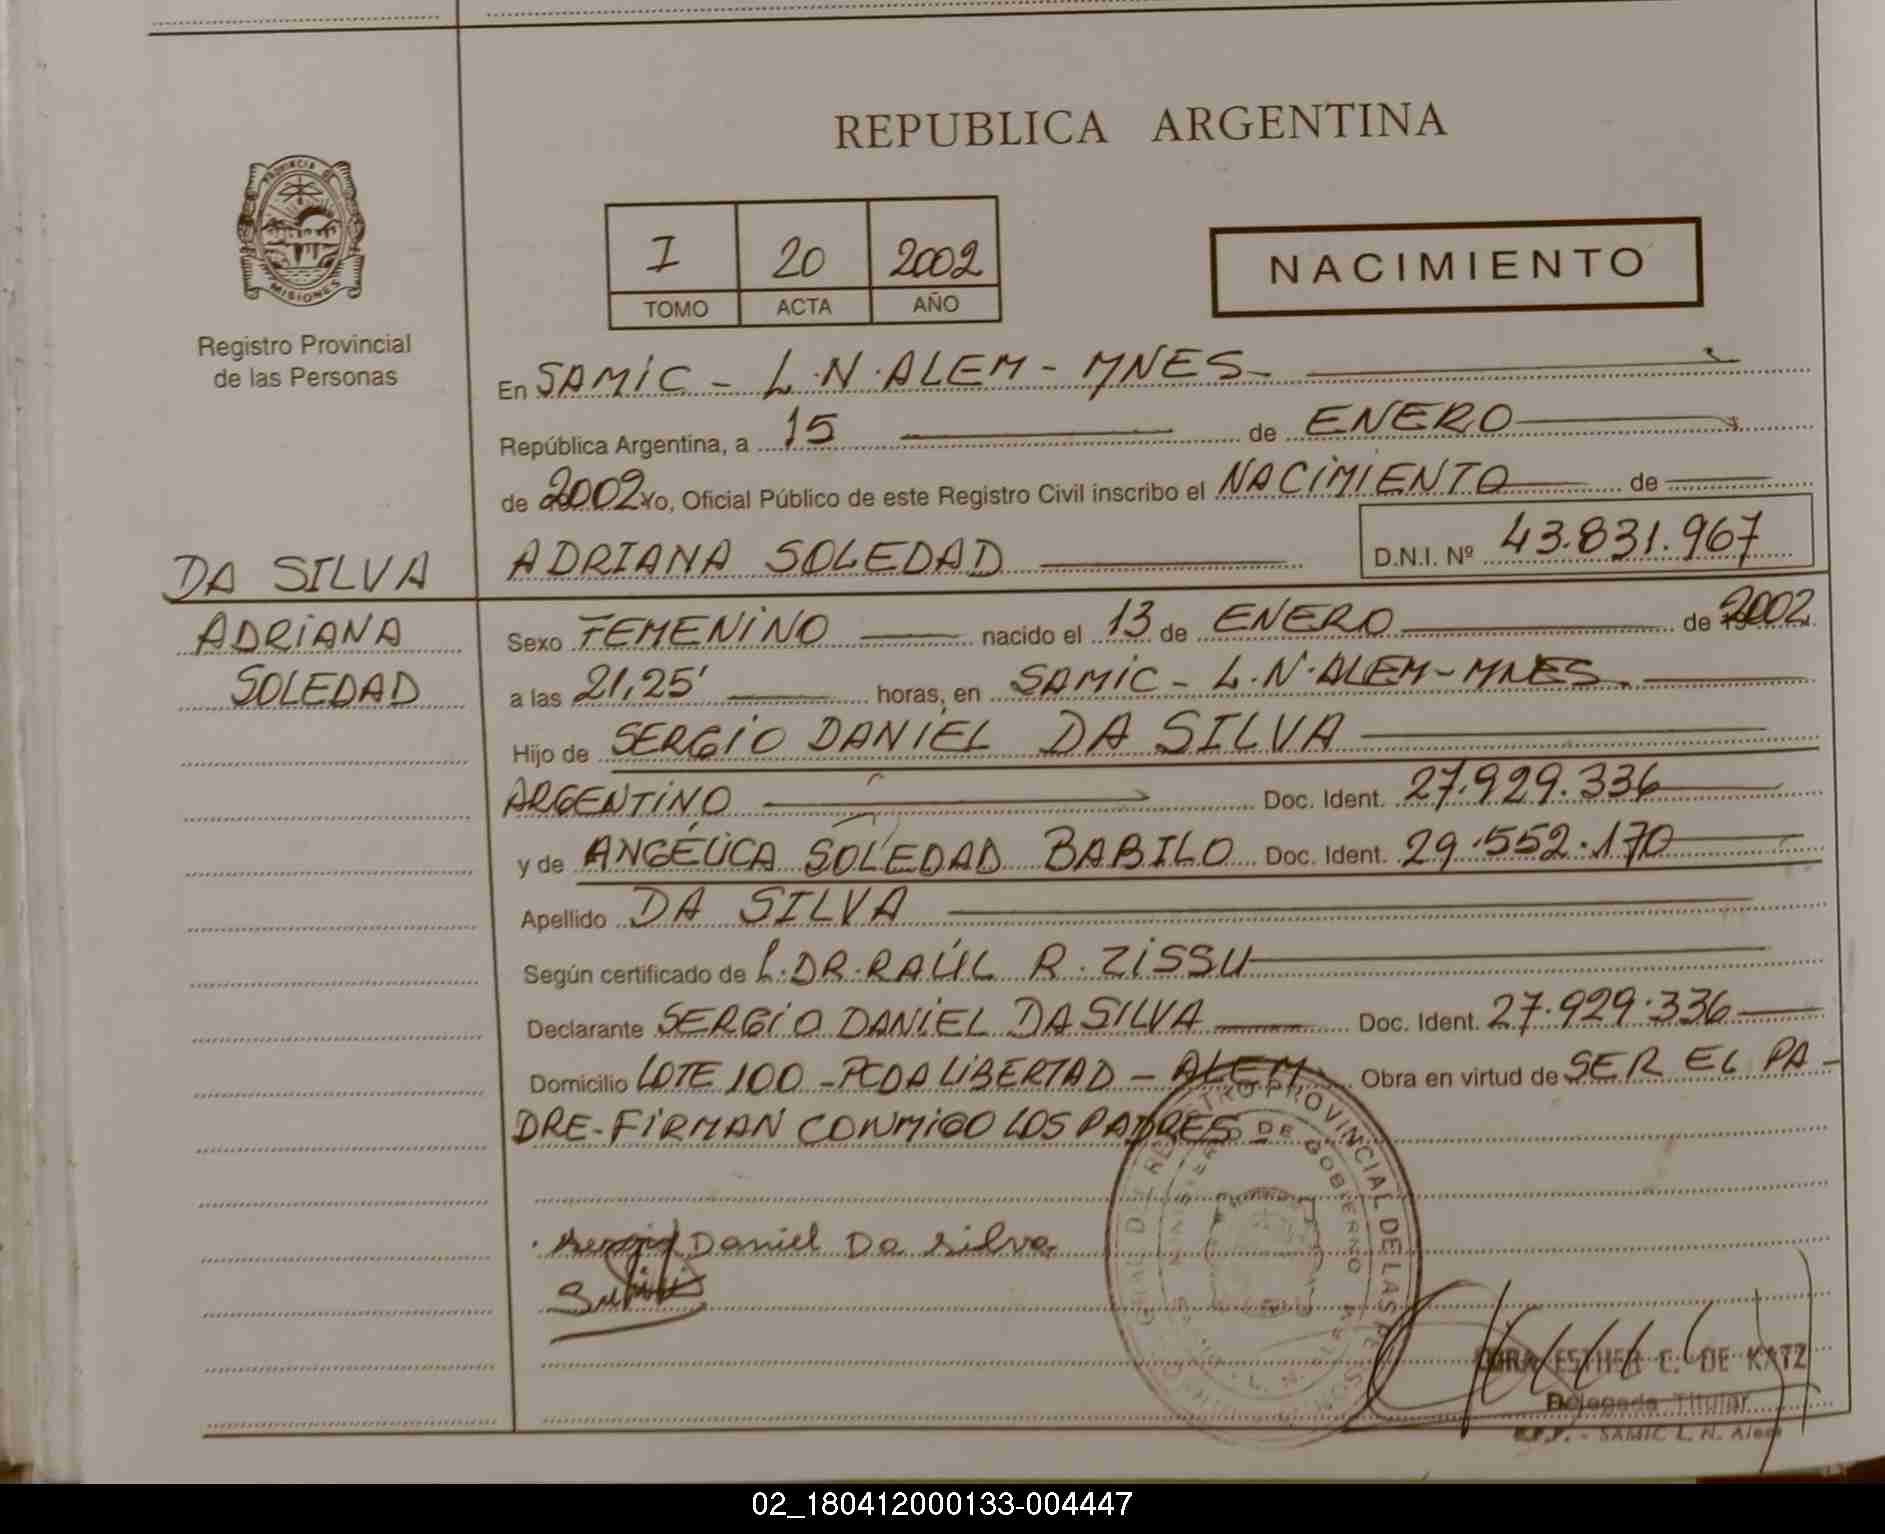 REPUBLICA ARGENTINA
PROVINCIA DE
MISIONES
Registro Provincial
de las Personas
I 20 2002
TOMO ACTA AÑO
NACIMIENTO
En SAMIC - L.N.ALEM - MNES
República Argentina, a 15 de ENERO
de 2002 Yo, Oficial Público de este Registro Civil inscribo el NACIMIENTO de
DA SILVA ADRIANA SOLEDAD D.N.I. Nº 43.831.967
ADRIANA Sexo FEMENINO nacido el 13 de ENERO de 2002
SOLEDAD a las 21,25' horas, en SAMIC - L.N.ALEM-MNES
Hijo de SERGIO DANIEL DA SILVA
ARGENTINO Doc. Ident. 27.929.336
y de ANGÉLICA SOLEDAD BABILO Doc. Ident. 29.552.170
Apellido DA SILVA
Según certificado de DR.RAÚL R. ZISSU
Declarante SERGIO DANIEL DA SILVA Doc. Ident. 27.929.336
Domicilio LOTE 100 - PCDA LIBERTAD - ALEM Obra en virtud de SER EL PA-
DRE-FIRMAN CONMIGO LOS PADRES
REGISTRO PROVINCIAL DE LAS PERSONAS
MINISTERIO DE GOBIERNO
Sergio Daniel Da silva
ESTHER C. DE KATZ
Delegada Titular
R.P.P. - SAMIC L. N. Alem
02_180412000133-004447